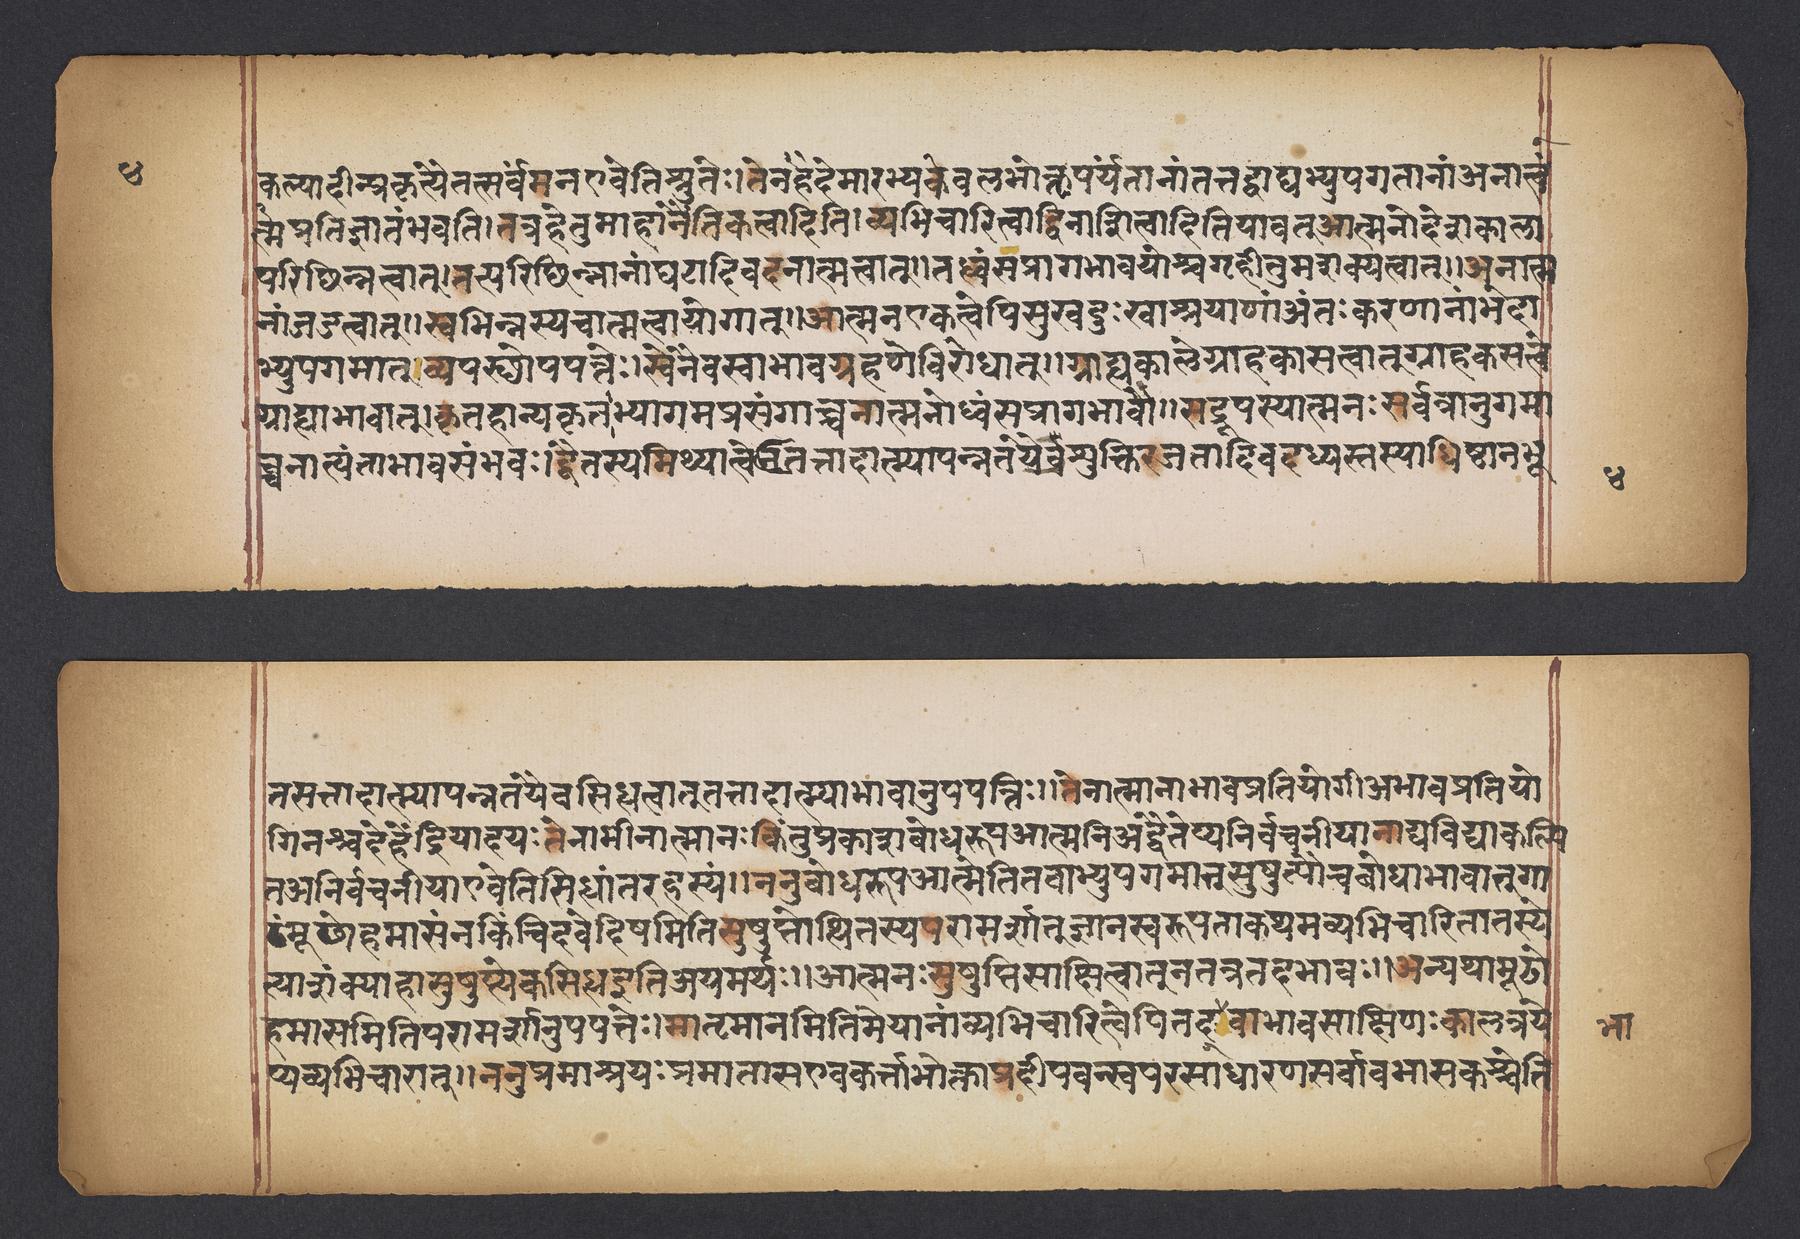 ४
कल्पादीन्प्रकृत्यैतत्सर्वंमनएवेतिश्रुतेः।तेनदेहेमारभ्यकेवलभोक्तृपर्यंतानांतत्तद्वाद्यभ्युपगतानांअनात्मत्वं
त्मंप्रतिज्ञातंभवति।तत्रहेतुमाहानैतिकत्वादिति।व्यभिचारित्वाद्विनाशित्वादितियावत्आत्मनोदेशकाला
परिछिन्नत्वात्।तत्परिछिन्नानांघटादिवदनात्मत्वात्॥तध्वंसप्रागभावयोश्चगृहीतुमशक्यत्वात्॥अनात्म
नांजडत्वात्॥स्वभिन्नस्यचात्मत्वायोगात्॥आत्मनएकत्वेपिसुखदुःखाश्रयाणांअंतःकरणानांभेदा
भ्युपगमात्।व्यवस्थोपपत्तेः।स्वेनैवस्वाभावग्रहणेविरोधात्॥ग्राह्यकालेग्राहकासत्वात्ग्राहकसत्वे
ग्राह्याभावात्।कृतहान्यकृताभ्यागमप्रसंगाच्चनात्मनोध्वंसप्रागभावौ॥सद्रूपस्यात्मनःसर्वत्रानुगमा
च्चनात्यंताभावसंभवः।द्वैतस्यमिथ्यात्वेनतत्तादात्म्यापन्नतयैवशुक्तिरजतादिवदध्यस्तस्याधिष्ठानभू
४
तसत्तादात्म्यापन्नतयैवसिध्यत्वात्तत्तादात्म्याभावानुपपत्तिः॥तेनात्मानाभावप्रतियोगीअभावप्रतियो
गिनश्चदेहेंद्रियादयःतेनामीनात्मानःकिंतुप्रकाशबोधरूपआत्मनिअद्वैतेप्यनिर्वचनीयानाद्यविद्याकल्पि
तअनिर्वचनीयाएवेतिसिधांतरहस्यं॥ननुबोधरूपआत्मेतितवाभ्युपगमात्सुषुप्तौचबोधाभावात्गा
ढंमूढोहमासंनकिंचिदवेदिषमितिसुषुप्तोत्थितस्यपरामर्शात्ज्ञानस्वरूपताकथमव्यभिचारितातस्ये
त्याशंक्याहासुषुप्त्येकसिध्यइतिअयमर्थः॥आत्मनःसुषुप्तिसाक्षित्वात्नतत्रतदभावः॥अन्यथामूढो
हमासमितिपरामर्शानुपपत्तेः।मातृमानमितिमेयानांव्यभिचारित्वेपितद्भावाभावसाक्षिणःकालत्रये
भा
प्यव्यभिचारात्॥ननुप्रमाश्रयःप्रमातासएवकर्त्ताभोक्ताप्रदीपवत्स्वपरसाधारणसर्वावभासकश्चेति